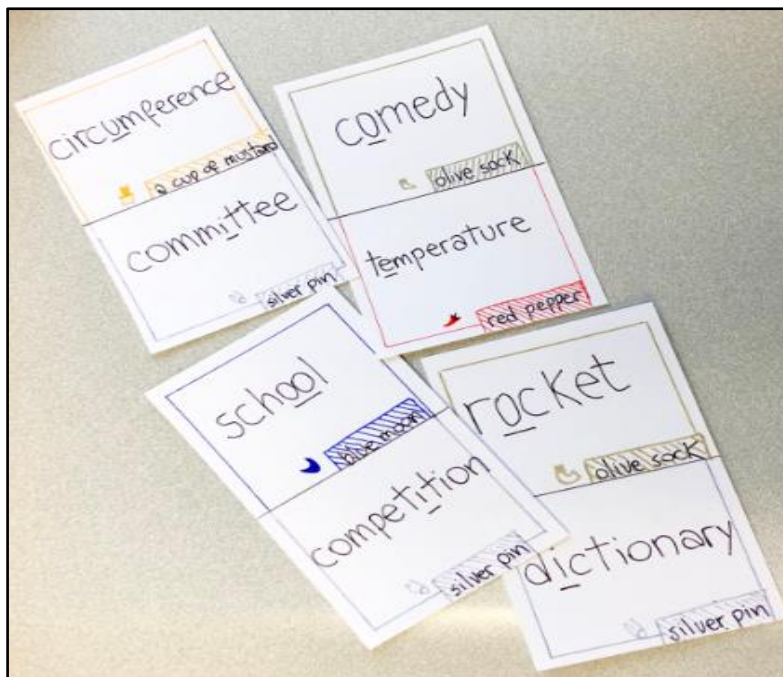 circumference
a cup of mustard
committee
silver pin
comedy
olive sock
temperature
red pepper
school
blue moon
competition
silver pin
rocket
olive sock
dictionary
silver pin